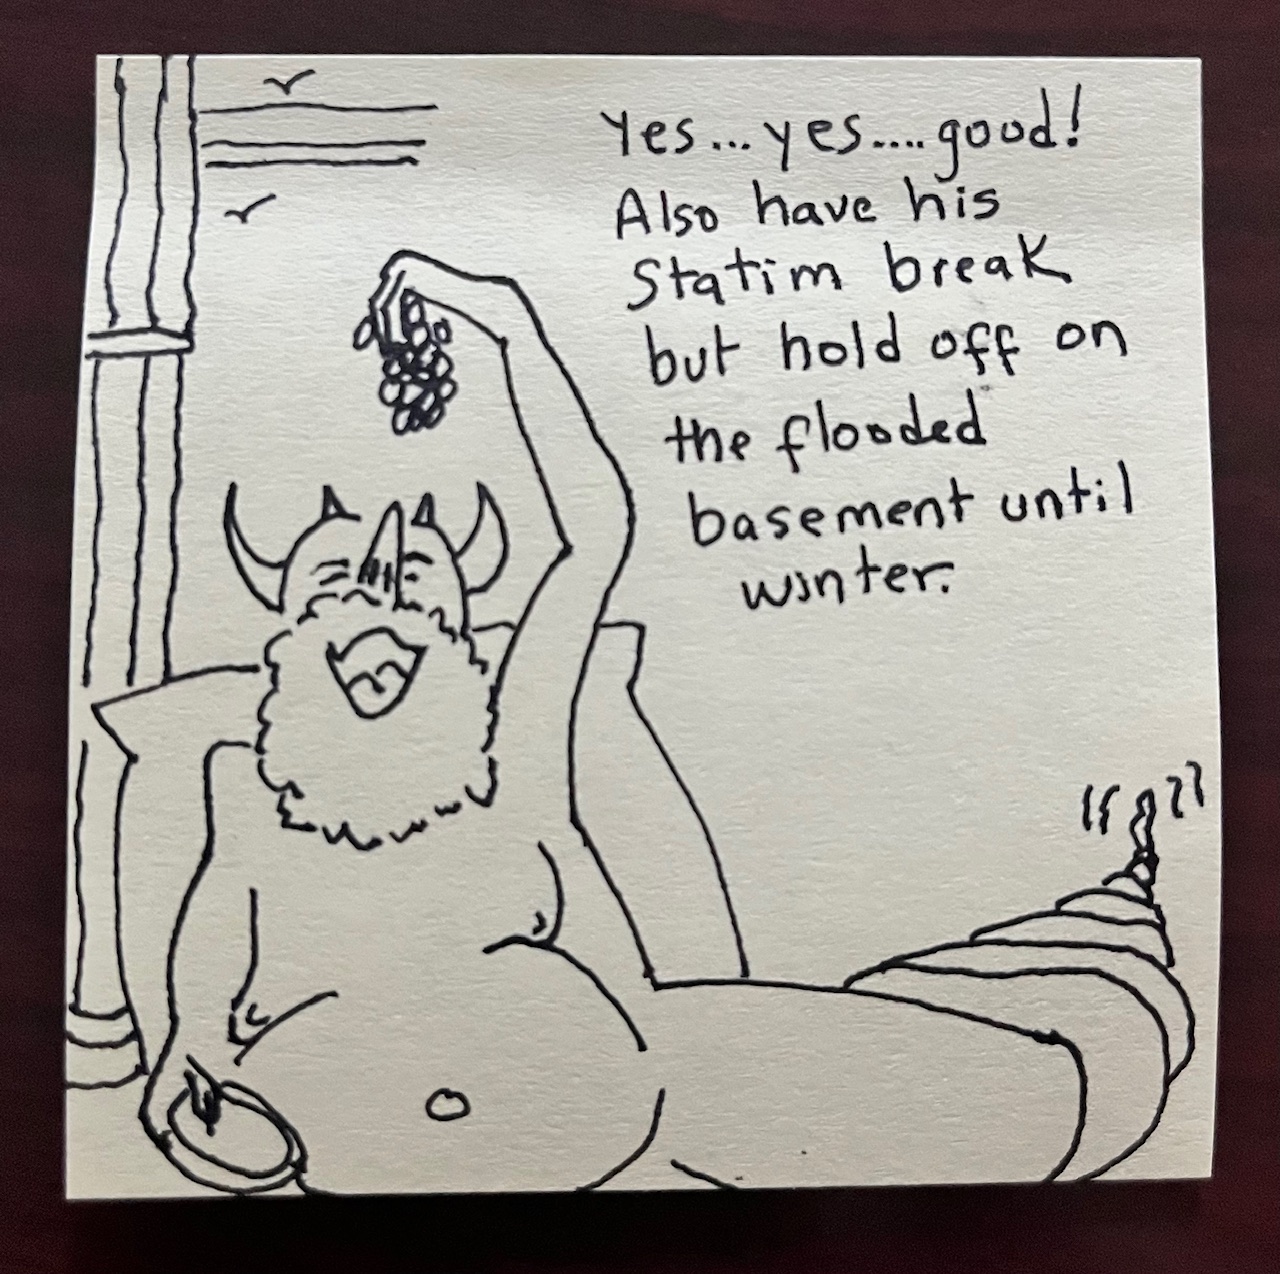 Yes...yes....good!
Also have his
Statim break
but hold off on
the flooded
basement until
winter.